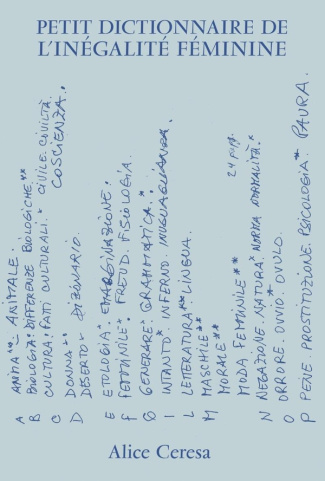 PETIT DICTIONNAIRE DE
L'INÉGALITÉ FÉMININE
A ANIMA** ANIMALE.
B BIOLOGIA* DIFFERENZE BIOLOGICHE**
C CULTURA. FATTI CULTURALI. CIVILE. CIVILTÀ.
COSCIENZA.
D DONNA**
DESERTO* DIZIONARIO.
E ETOLOGIA. EMARGINAZIONE.
F FEMMINILE* FREUD. FISIOLOGIA.
G GENERARE. GRAMMATICA.
I INTANTO* INFERNO. INUGUAGLIANZA.
L LETTERATURA** LINGUA.
M MASCHILE**
MORALE**
MODA FEMMINILE** 24 pag.
N NEGAZIONE. NATURA* NORMA NORMALITÀ.*
O ORRORE. OVVIO. OVULO.
P PENE. PROSTITUZIONE. PSICOLOGIA* PAURA.
Alice Ceresa